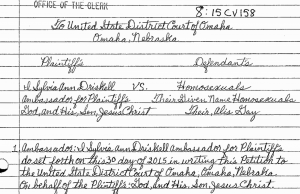 OFFICE OF THE CLERK
8:15CV158
To United State District Court of Omaha
Omaha, Nebraska.
Plaintiffs Defendants
I Sylvia Ann Driskell VS. Homosexuals
Ambassador for Plaintiffs Their Given Name Homosexuals
God, and His, Son, Jesus Christ Their, Alis Gay
1 Ambassador: I Sylvia Ann Driskell ambassador for Plaintiffs
do set forth on this 30 day of 2015 in writing this Petition to
the United State District Court of Omaha, Omaha, Nebraska
On behalf of the Plintiffs God, and His, Son, Jesus Christ.